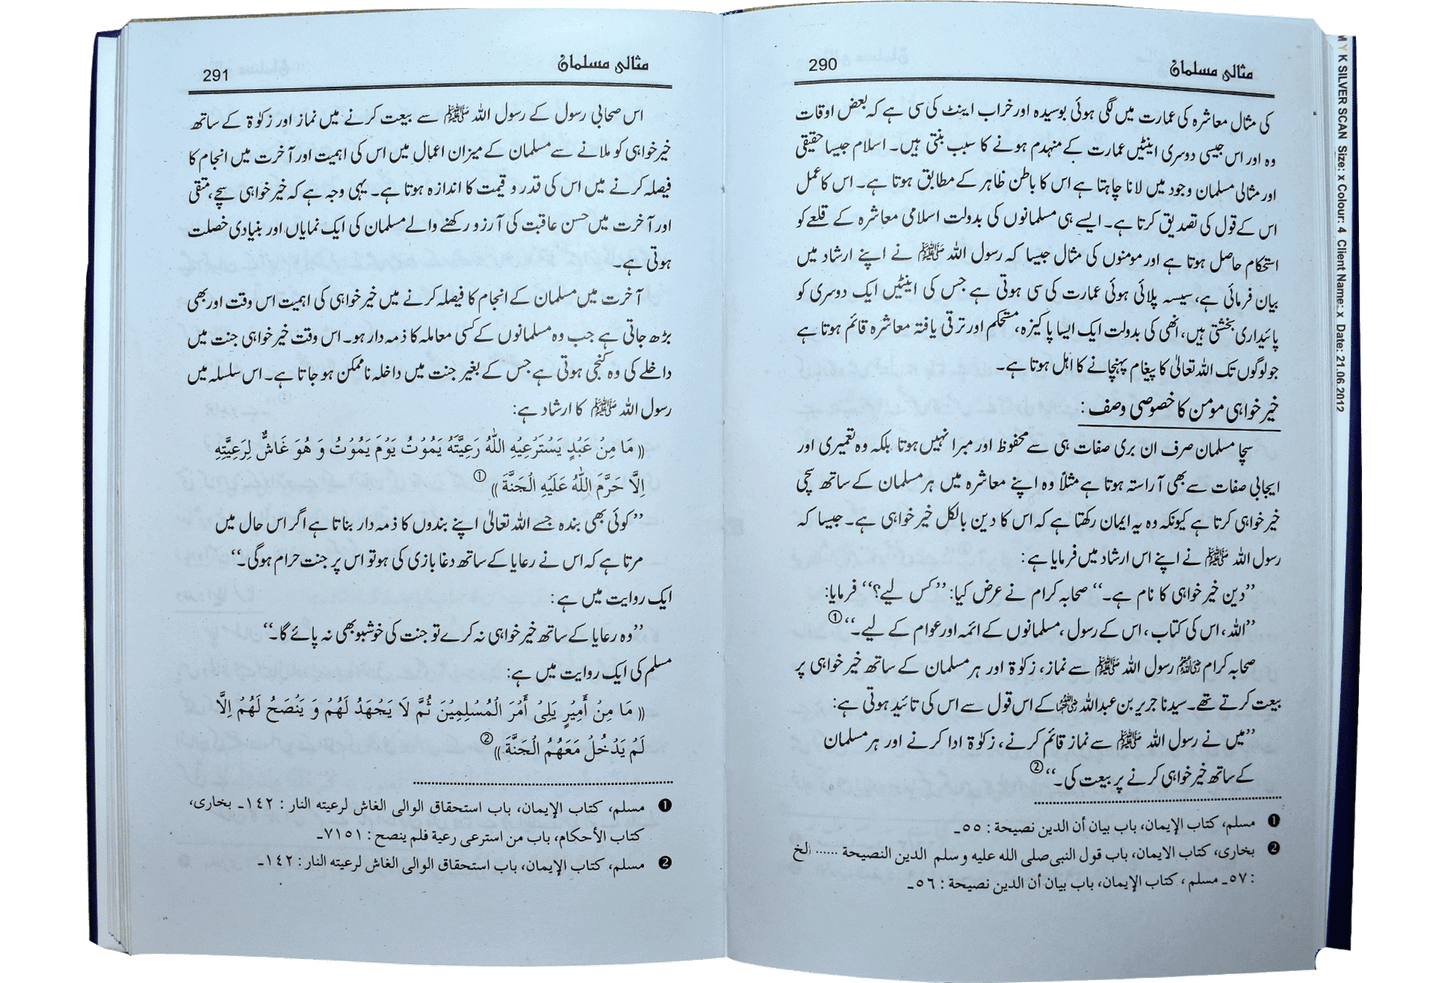 290
مثالی مسلمان
کی مثال معاشرہ کی عمارت میں لگی ہوئی بوسیدہ اور خراب اینٹ کی سی ہے کہ بعض اوقات
وہ اور اس جیسی دوسری اینٹیں عمارت کے منہدم ہونے کا سبب بنتی ہیں۔ اسلام جیسا حقیقی
اور مثالی مسلمان وجود میں لانا چاہتا ہے اس کا باطن ظاہر کے مطابق ہوتا ہے۔ اس کا عمل
اس کے قول کی تصدیق کرتا ہے۔ ایسے ہی مسلمانوں کی بدولت اسلامی معاشرہ کے قلعے کو
استحکام حاصل ہوتا ہے اور مومنوں کی مثال جیسا کہ رسول اللہ ﷺ نے اپنے ارشاد میں
بیان فرمائی ہے، سیسہ پلائی ہوئی عمارت کی سی ہوتی ہے جس کی اینٹیں ایک دوسری کو
پائیداری بخشتی ہیں، انھی کی بدولت ایک ایسا پاکیزہ، مستحکم اور ترقی یافتہ معاشرہ قائم ہوتا ہے
جو لوگوں تک اللہ تعالیٰ کا پیغام پہنچانے کا اہل ہوتا ہے۔
خیر خواہی مومن کا خصوصی وصف :
سچا مسلمان صرف ان بری صفات ہی سے محفوظ اور مبرا نہیں ہوتا بلکہ وہ تعمیری اور
ایجابی صفات سے بھی آراستہ ہوتا ہے مثلاً وہ اپنے معاشرہ میں ہر مسلمان کے ساتھ سچی
خیر خواہی کرتا ہے کیونکہ وہ یہ ایمان رکھتا ہے کہ اس کا دین بالکل خیر خواہی ہے۔ جیسا کہ
رسول اللہ ﷺ نے اپنے اس ارشاد میں فرمایا ہے :
’’دین خیر خواہی کا نام ہے۔‘‘ صحابہ کرام نے عرض کیا: ’’کس لیے؟‘‘ فرمایا:
’’اللہ، اس کی کتاب، اس کے رسول، مسلمانوں کے ائمہ اور عوام کے لیے۔‘‘①
صحابہ کرام رضی اللہ عنہم رسول اللہ ﷺ سے نماز، زکوٰۃ اور ہر مسلمان کے ساتھ خیر خواہی پر
بیعت کرتے تھے۔ سیدنا جریر بن عبداللہ رضی اللہ عنہ کے اس قول سے اس کی تائید ہوتی ہے:
’’میں نے رسول اللہ ﷺ سے نماز قائم کرنے، زکوٰۃ ادا کرنے اور ہر مسلمان
کے ساتھ خیر خواہی کرنے پر بیعت کی۔‘‘②
❶ مسلم، کتاب الإیمان، باب بیان أن الدین نصیحة : ٥٥۔
❷ بخاری، کتاب الایمان، باب قول النبی صلی الله علیه و سلم الدین النصیحة ...... الخ
: ٥٧۔ مسلم ، کتاب الإیمان، باب بیان أن الدین نصیحة : ٥٦۔
291
مثالی مسلمان
اس صحابی رسول کے رسول اللہ ﷺ سے بیعت کرنے میں نماز اور زکوٰۃ کے ساتھ
خیر خواہی کو ملانے سے مسلمان کے میزان اعمال میں اس کی اہمیت اور آخرت میں انجام کا
فیصلہ کرنے میں اس کی قدر و قیمت کا اندازہ ہوتا ہے۔ یہی وجہ ہے کہ خیر خواہی سچے، متقی
اور آخرت میں حسن عاقبت کی آرزو رکھنے والے مسلمان کی ایک نمایاں اور بنیادی خصلت
ہوتی ہے۔
آخرت میں مسلمان کے انجام کا فیصلہ کرنے میں خیر خواہی کی اہمیت اس وقت اور بھی
بڑھ جاتی ہے جب وہ مسلمانوں کے کسی معاملہ کا ذمہ دار ہو۔ اس وقت خیر خواہی جنت میں
داخلے کی وہ کنجی ہوتی ہے جس کے بغیر جنت میں داخلہ ناممکن ہو جاتا ہے۔ اس سلسلہ میں
رسول اللہ ﷺ کا ارشاد ہے:
(( مَا مِنْ عَبْدٍ يَسْتَرْعِيْهِ اللّٰهُ رَعِيَّتَهُ يَمُوْتُ يَوْمَ يَمُوْتُ وَ هُوَ غَاشٌّ لِرَعِيَّتِهِ
اِلَّا حَرَّمَ اللّٰهُ عَلَيْهِ الْجَنَّةَ )) ①
’’کوئی بھی بندہ جسے اللہ تعالیٰ اپنے بندوں کا ذمہ دار بناتا ہے اگر اس حال میں
مرتا ہے کہ اس نے رعایا کے ساتھ دغا بازی کی ہو تو اس پر جنت حرام ہوگی۔‘‘
ایک روایت میں ہے :
’’وہ رعایا کے ساتھ خیر خواہی نہ کرے تو جنت کی خوشبو بھی نہ پائے گا۔‘‘
مسلم کی ایک روایت میں ہے:
(( مَا مِنْ أَمِيْرٍ يَلِىْ أَمْرَ الْمُسْلِمِيْنَ ثُمَّ لَا يَجْهَدُ لَهُمْ وَ يَنْصَحُ لَهُمْ اِلَّا
لَمْ يَدْخُلْ مَعَهُمُ الْجَنَّةَ )) ②
❶ مسلم، کتاب الإیمان، باب استحقاق الوالی الغاش لرعیته النار : ١٤٢۔ بخاری،
کتاب الأحکام، باب من استرعی رعیة فلم ینصح : ٧١٥١۔
❷ مسلم، کتاب الإیمان، باب استحقاق الوالی الغاش لرعیته النار : ١٤٢۔
K SILVER SCAN Size: x Colour: 4 Client Name: x Date: 21.06.2012